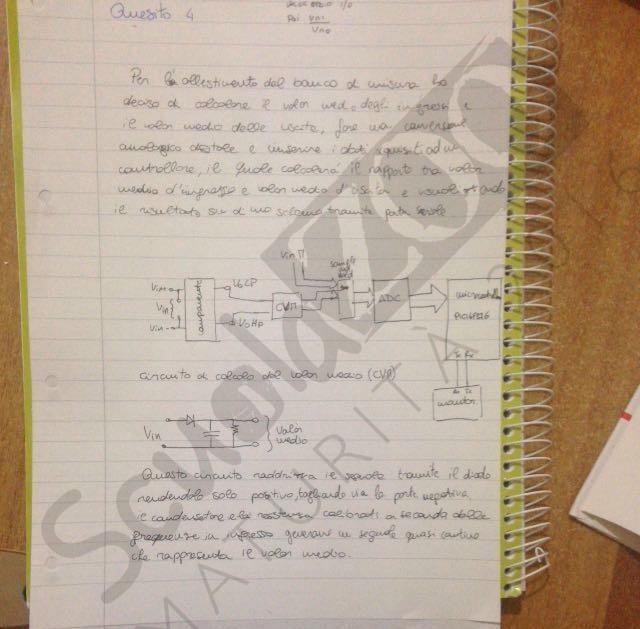 Quesito 4
I/O
Poi Vm1
Vmo
Per l'allestimento del banco di misura ho
deciso di calcolare il valor medio degli ingressi e
il valor medio delle uscite, fare una conversione
analogico digitale e inserire i dati acquisiti ad un
controllore, il quale calcolerà il rapporto tra valor
medio d'ingresso e valor medio d'uscita e visualizzando
il risultato su di uno schermo tramite porta seriale
Vin+
Vin
Vin-
componente
VoLP
VoHP
CVM
Vin
ADC
PIC16F876
Tx Rx
Rx Tx
monitor
Circuito di calcolo del valor medio (CVM)
Vin
Valor
medio
Questo circuito raddrizza il segnale tramite il diodo
rendendolo solo positivo, tagliando via la parte negativa
il condensatore e la resistenza calibrati a seconda delle
frequenze in ingresso generano un segnale quasi continuo
che rappresenta il valor medio.
ScuolaZOO
MATURITÀ